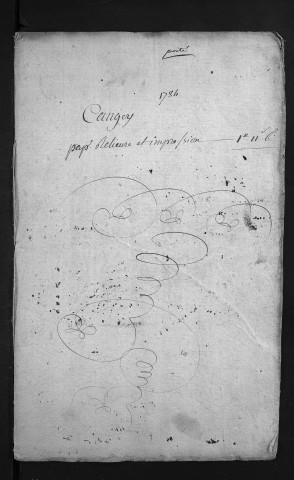 porté
1784
Cangey
pap.r Relieure et impression —— 1# 11s 6